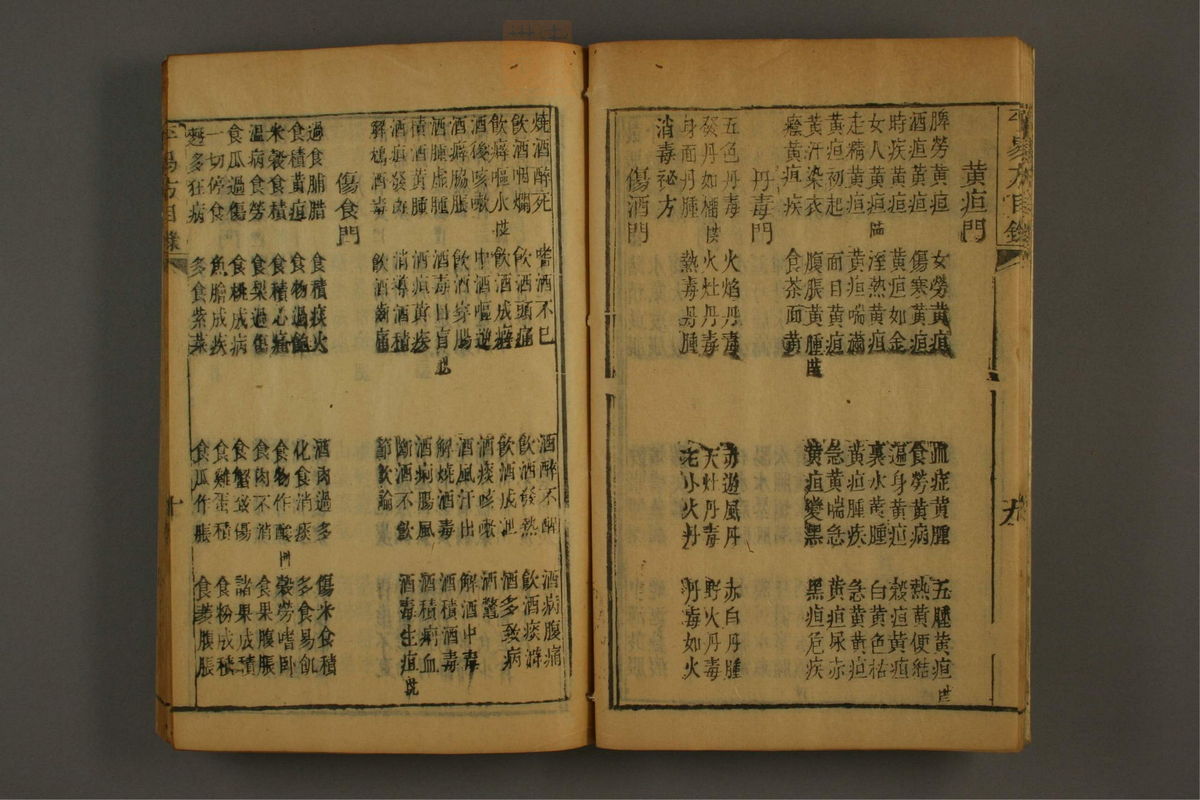 黄疸門
脾勞黄疸 女勞黄疸 血症黄腫 五腫黄疸
酒疸黄疸 傷寒黄疸 食勞黄病 熱黄便結
時疾黄疸 黄疸如金 遍身黄疸 穀疸黄疸
女人黄疸 溼熱黄疸 裏水黄腫 白黄色枯
走精黄疸 黄疸喘滿 黄疸腫疾 急黄黄疸
黄疸初起 面目黄疸 急黄喘急 黄疸尿赤
黄汗染衣 腹脹黄腫 黄疸變黑 黑疸危疾
瘀黄疸疾 食茶面黄
丹毒門
五色丹毒 火焰丹毒 赤遊風丹 赤白丹腫
發丹如 火灶丹毒 天灶丹毒 野火丹毒
身面丹腫 熱毒丹腫 老小火丹 丹毒如火
消毒祕方
傷酒門
九
燒酒醉死 嗜酒不已 酒醉不醒 酒病腹痛
飲酒咽爛 飲酒頭痛 飲酒發熱 飲酒痰澼
飲癖嘔水 飲酒成癖 飲酒成 酒多致病
酒後咳嗽 中酒嘔逆 酒痰咳嗽 酒鱉
酒癖脇脹 飲酒穿腸 酒風汗出 解酒中毒
酒腫虚腫 酒毒目盲 解燒酒毒 酒積酒毒
積酒黄腫 酒疸黄疾 酒痢腸風 酒積痢血
酒疸發 消導酒積 斷酒不飲 酒毒生疽
解 酒毒 飲酒齒痛 節飲論
傷食門
過食脯腊 食積痰火 酒肉過多 傷米食積
食積黄疸 食物過飽 化食消痰 多食易飢
米穀食積 食積心痛 食物作酸 穀勞嗜卧
溫病食勞 食梨過傷 食肉不消 食果腹脹
食瓜過傷 食桃成病 食蟹致傷 諸果成積
一切停食 魚膾成疾 食雞蛋積 食粉成積
多狂病 多食紫菜 食瓜作脹 食 腹脹
十